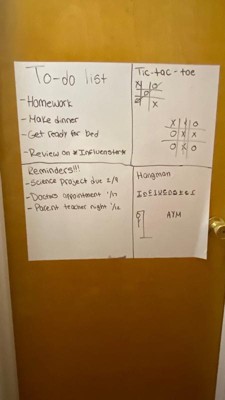 To-do list
-Homework
-Make dinner
-Get ready for bed
-Review on *Influenster*
Tic-tac-toe
X O
O
O X
X X O
O X X
O X O
Reminders!!!
-Science project due 2/9
-Doctors appointment 1/17
-Parent teacher night 1/12
Hangman
INFLUENSTER
AYM